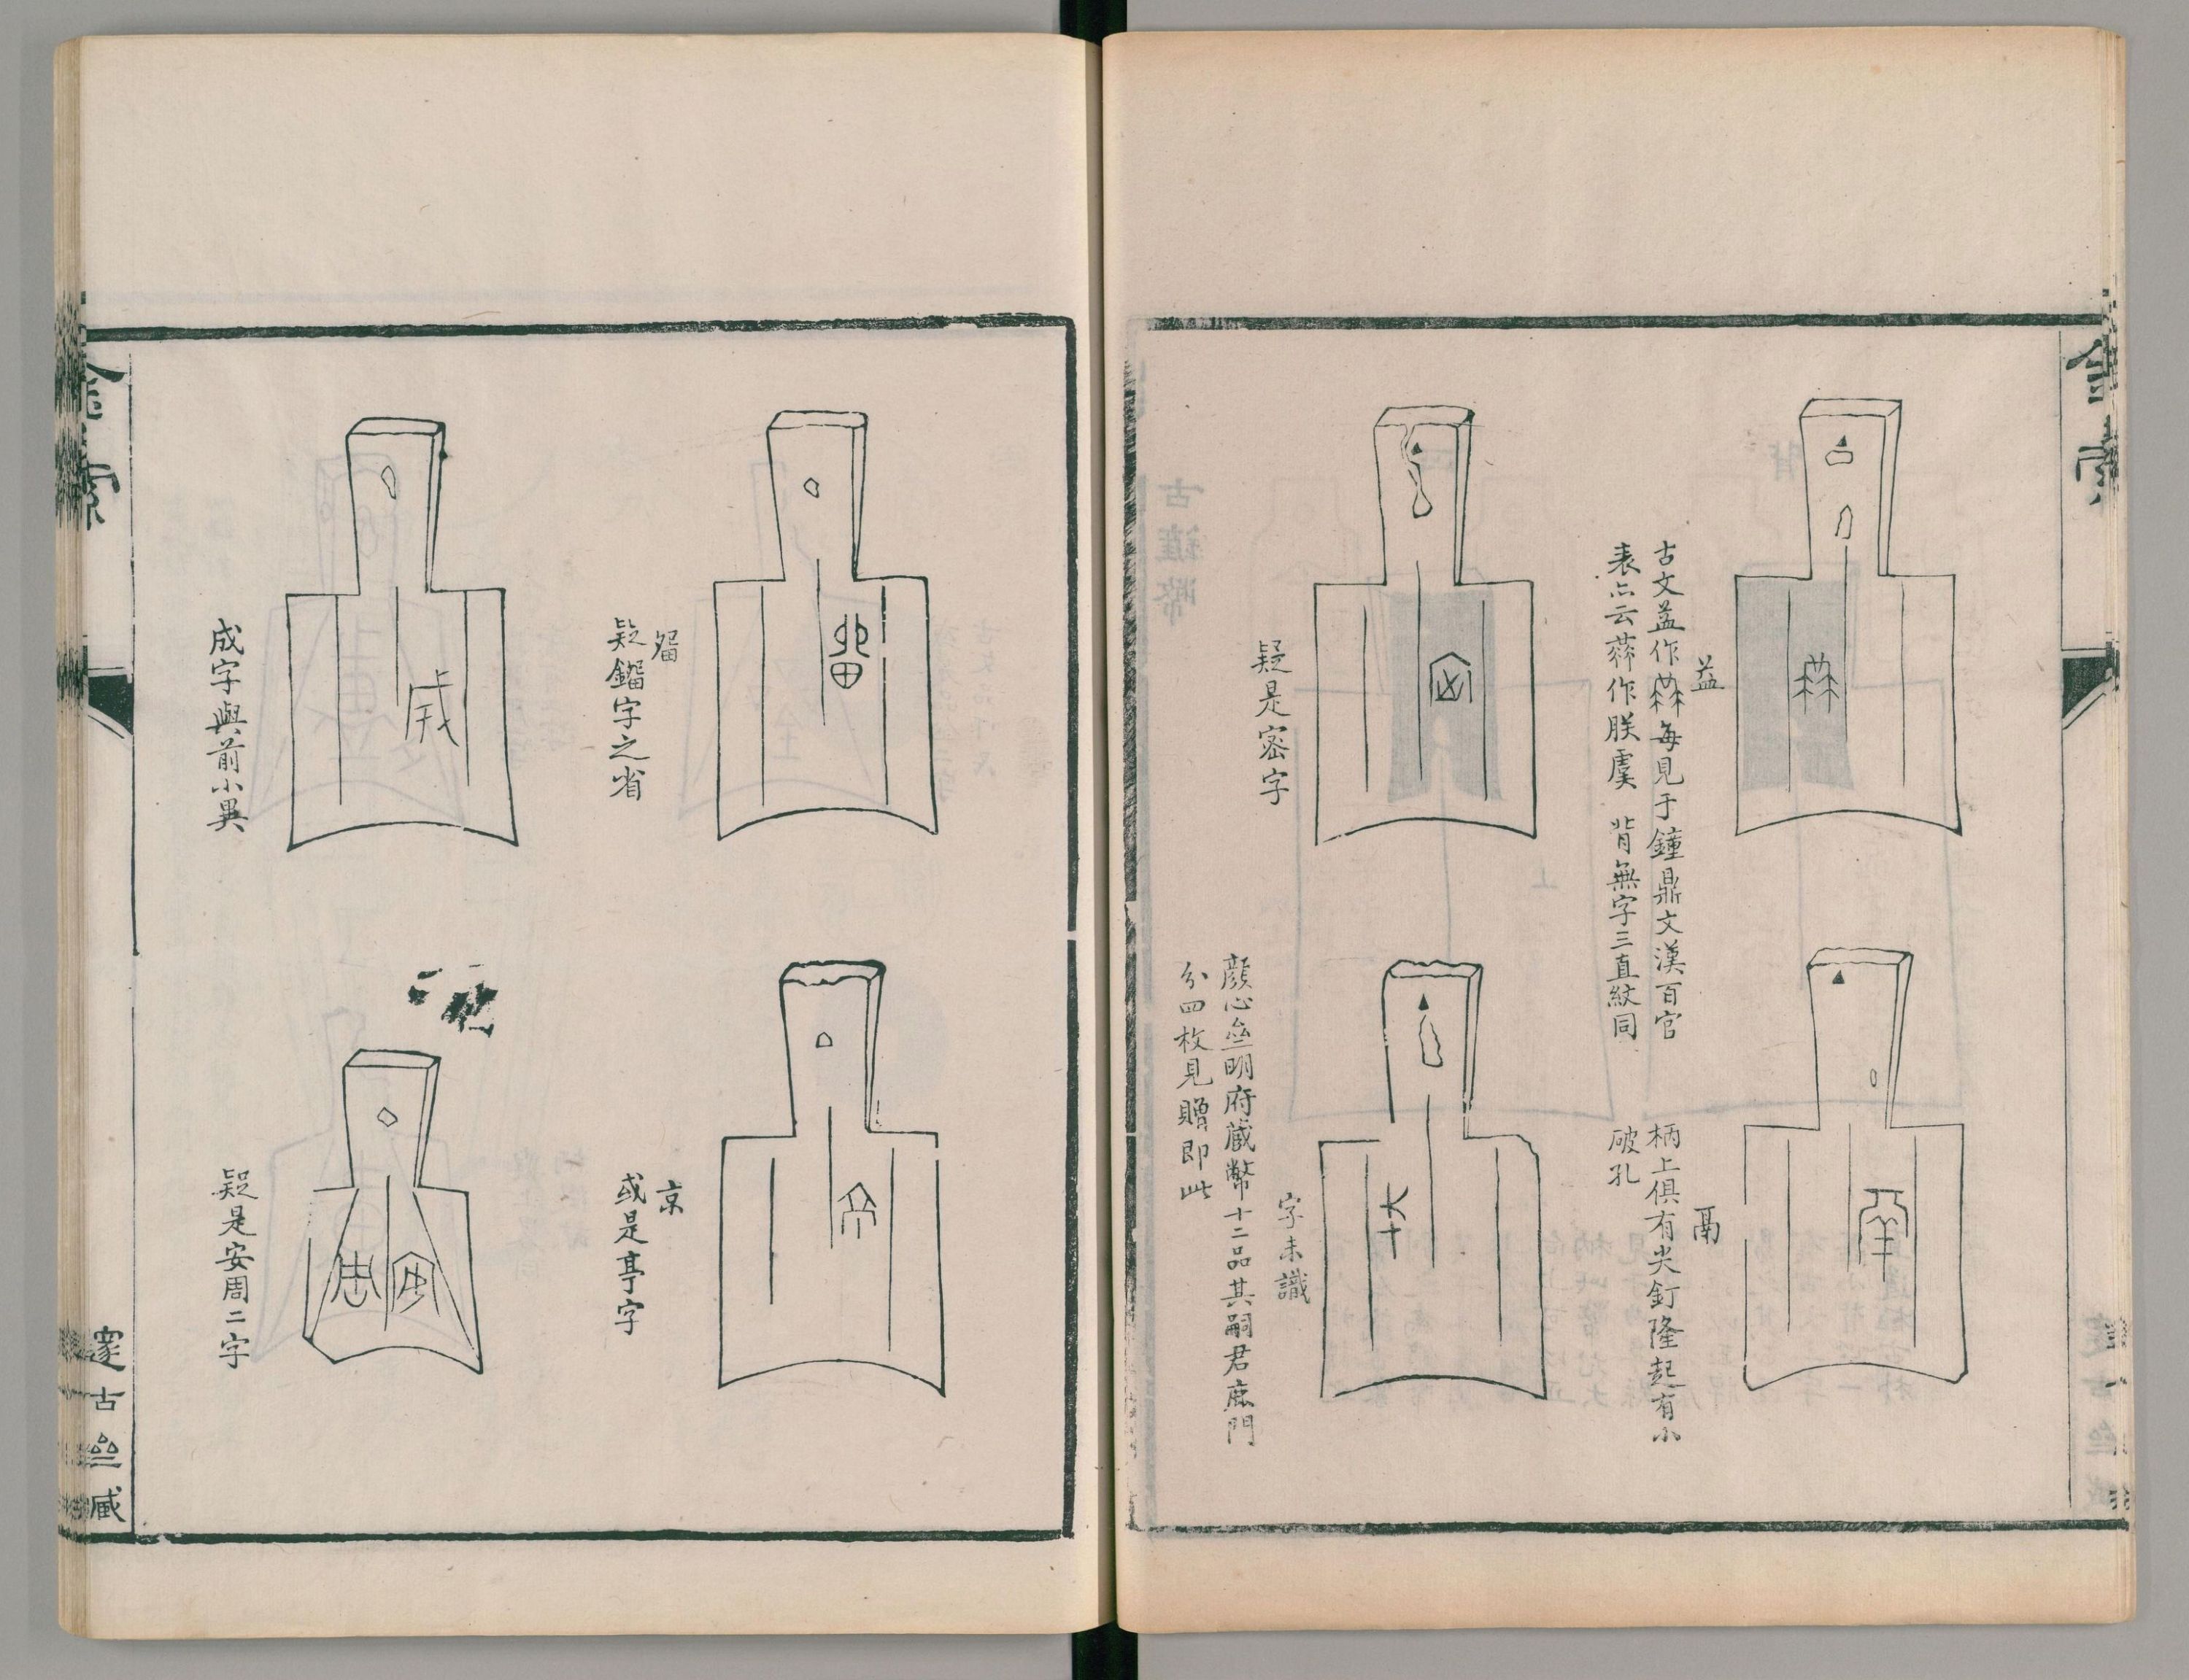 金索
益
古文益作𦫃每見于鐘鼎文漢百官
表亦云𦫃作朕虞 背無字三直紋同
鬲
柄上俱有尖釘隆起有小
破孔
疑是密字
字未識
顔心壺明府藏幣十二品其嗣君鹿門
分四枚見贈即此
㽞
疑鎦字之省
京
或是亭字
成字與前小異
疑是安周二字
金索
邃古𡉏臧